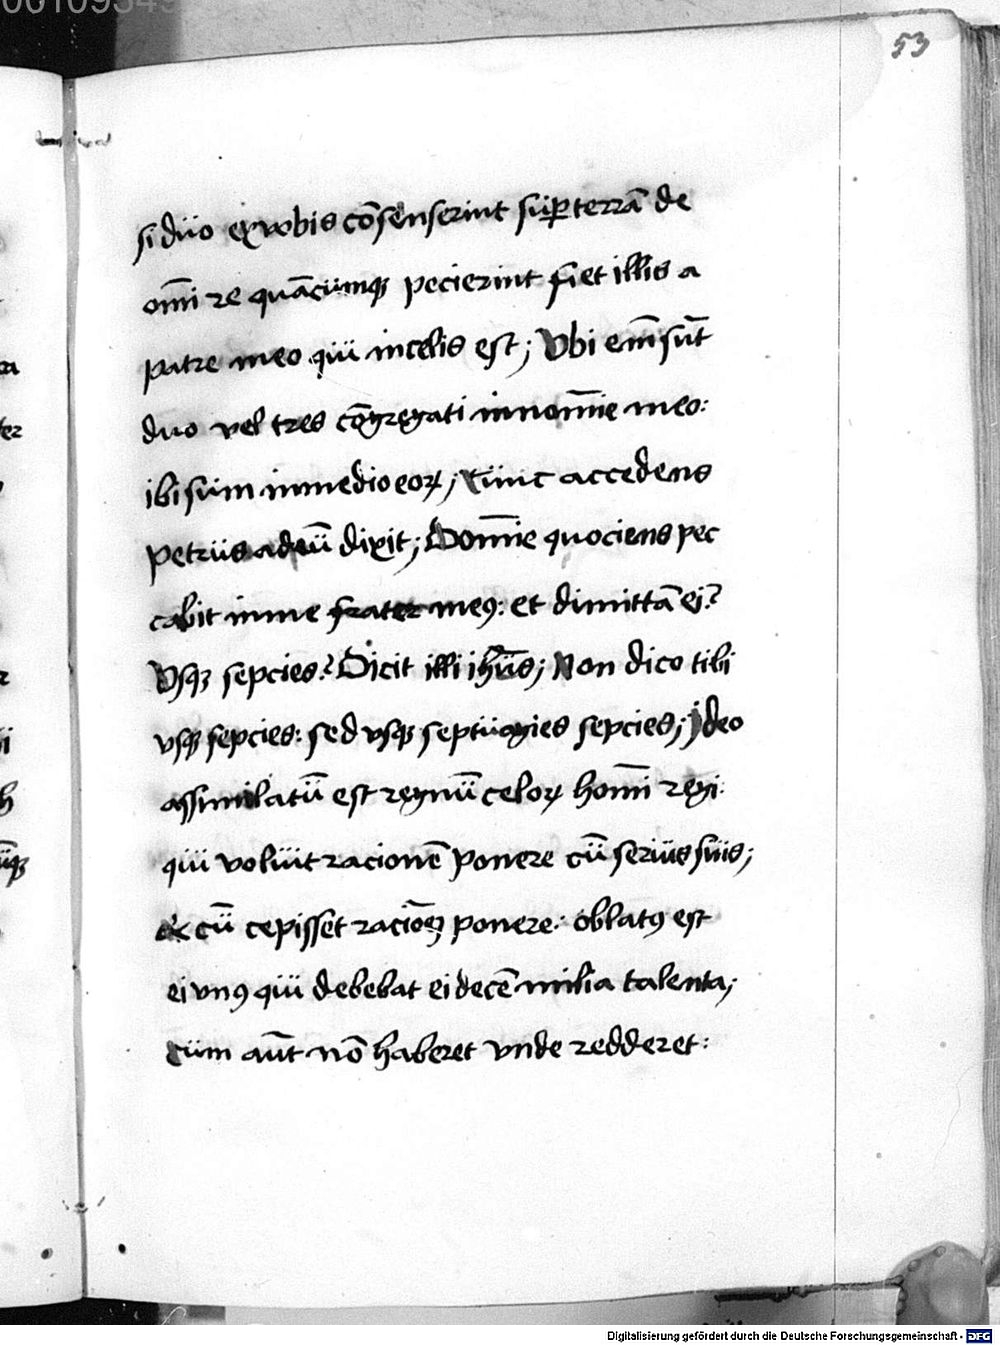 53
si duo ex vobis cōsenserint sup̱ terrā de
om̄i re quācumqȝ pecierint fiet illis a
patre meo qui in celis est; Vbi em̄ sūt
duo vel tres cōgregati in nom̄ie meo:
ibi sum in medio eoꝝ; Tunc accedens
petrus ad eū dixit; Dom̄ie quociens pec
cabit in me frater meꝯ: et dimittā ei?
Vsqȝ sepcies? Dicit illi ihūs; Non dico tibi
vsqȝ sepcies: sed vsqȝ septuagies sepcies; jdeo
assimilatū est regnū celoꝝ hom̄i regi:
qui voluit racionē ponere cū seruis suis;
et cū cepisset racio̅eȝ ponere: oblatꝯ est
ei vnꝯ qui debebat ei decē milia talenta;
cum aūt nō haberet vnde redderet:
Digitalisierung gefördert durch die Deutsche Forschungsgemeinschaft - DFG